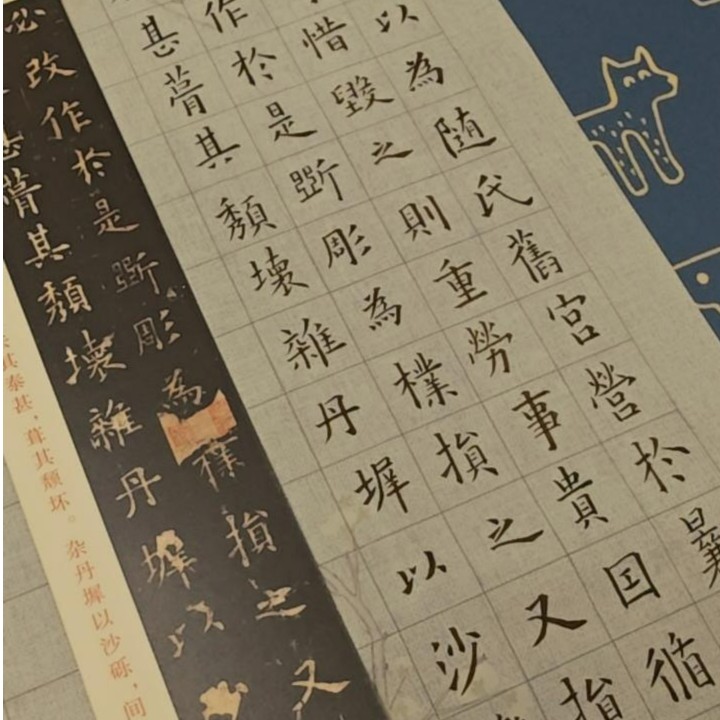 以為隨氏舊宮營於曩
惜毀之則重勞事貴因循
作於是斲彫為樸損之又損
甚葺其頹壞雜丹墀以沙
必改作於是斲彫為樸損之又
甚葺其頹壞雜丹墀以
其泰甚，葺其颓坏。杂丹墀以沙砾，间